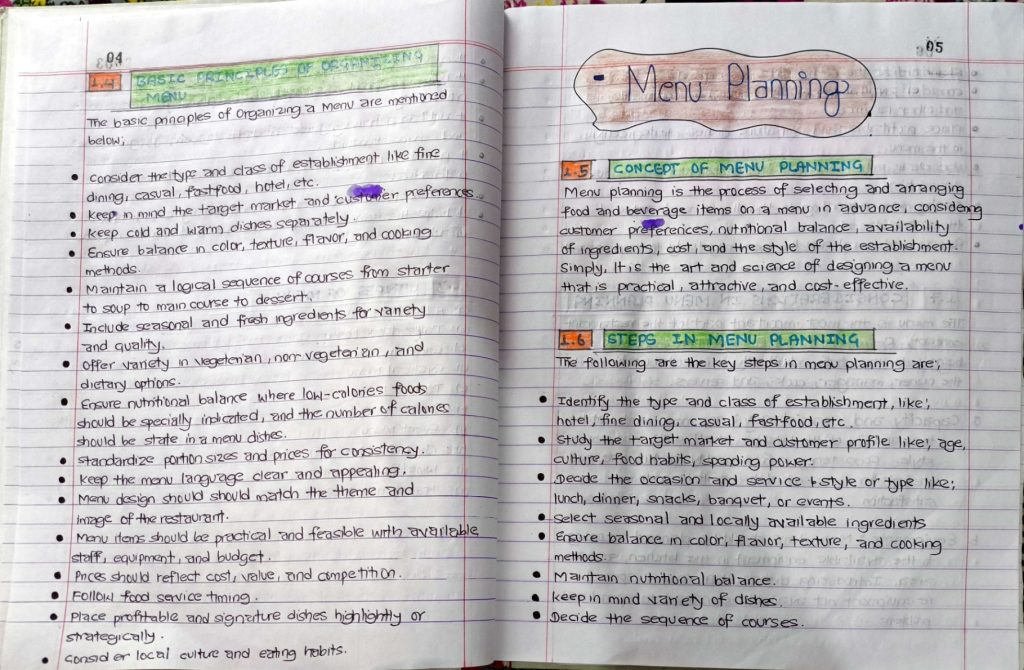 04
1.4 BASIC PRINCIPLES OF ORGANIZING
MENU
The basic principles of Organizing a Menu are mentioned
below;
• Consider the type and class of establishment like fine
dining, casual, fastfood, hotel, etc.
• Keep in mind the target market and customer preferences.
• Keep cold and warm dishes separately.
• Ensure balance in color, texture, flavor, and cooking
methods.
• Maintain a logical sequence of courses from starter
to soup to main course to dessert.
• Include seasonal and fresh ingredients for variety
and quality.
• Offer variety in vegetarian, non-vegetarian, and
dietary options.
• Ensure nutritional balance where low-calories foods
should be specially indicated, and the number of calories
should be state in a menu dishes.
• Standardize portion sizes and prices for consistency.
• Keep the menu language clear and appealing.
• Menu design should should match the theme and
image of the restaurant.
• Menu items should be practical and feasible with available
staff, equipment, and budget.
• Prices should reflect cost, value, and competition.
• Follow food service timing.
• Place profitable and signature dishes highlightly or
strategically.
• Consider local culture and eating habits.
05
Menu Planning
1.5 CONCEPT OF MENU PLANNING
Menu planning is the process of selecting and arranging
food and beverage items on a menu in advance, considering
customer preferences, nutritional balance, availability
of ingredients, cost, and the style of the establishment.
Simply, It is the art and science of designing a menu
that is practical, attractive, and cost-effective.
1.6 STEPS IN MENU PLANNING
The following are the key steps in menu planning are;
• Identify the type and class of establishment, like;
hotel, fine dining, casual, fastfood, etc.
• Study the target market and customer profile like; age,
culture, food habits, spending power.
• Decide the occasion and service style or type like;
lunch, dinner, snacks, banquet, or events.
• Select seasonal and locally available ingredients
• Ensure balance in color, flavor, texture, and cooking
methods.
• Maintain nutritional balance.
• Keep in mind variety of dishes.
• Decide the sequence of courses.